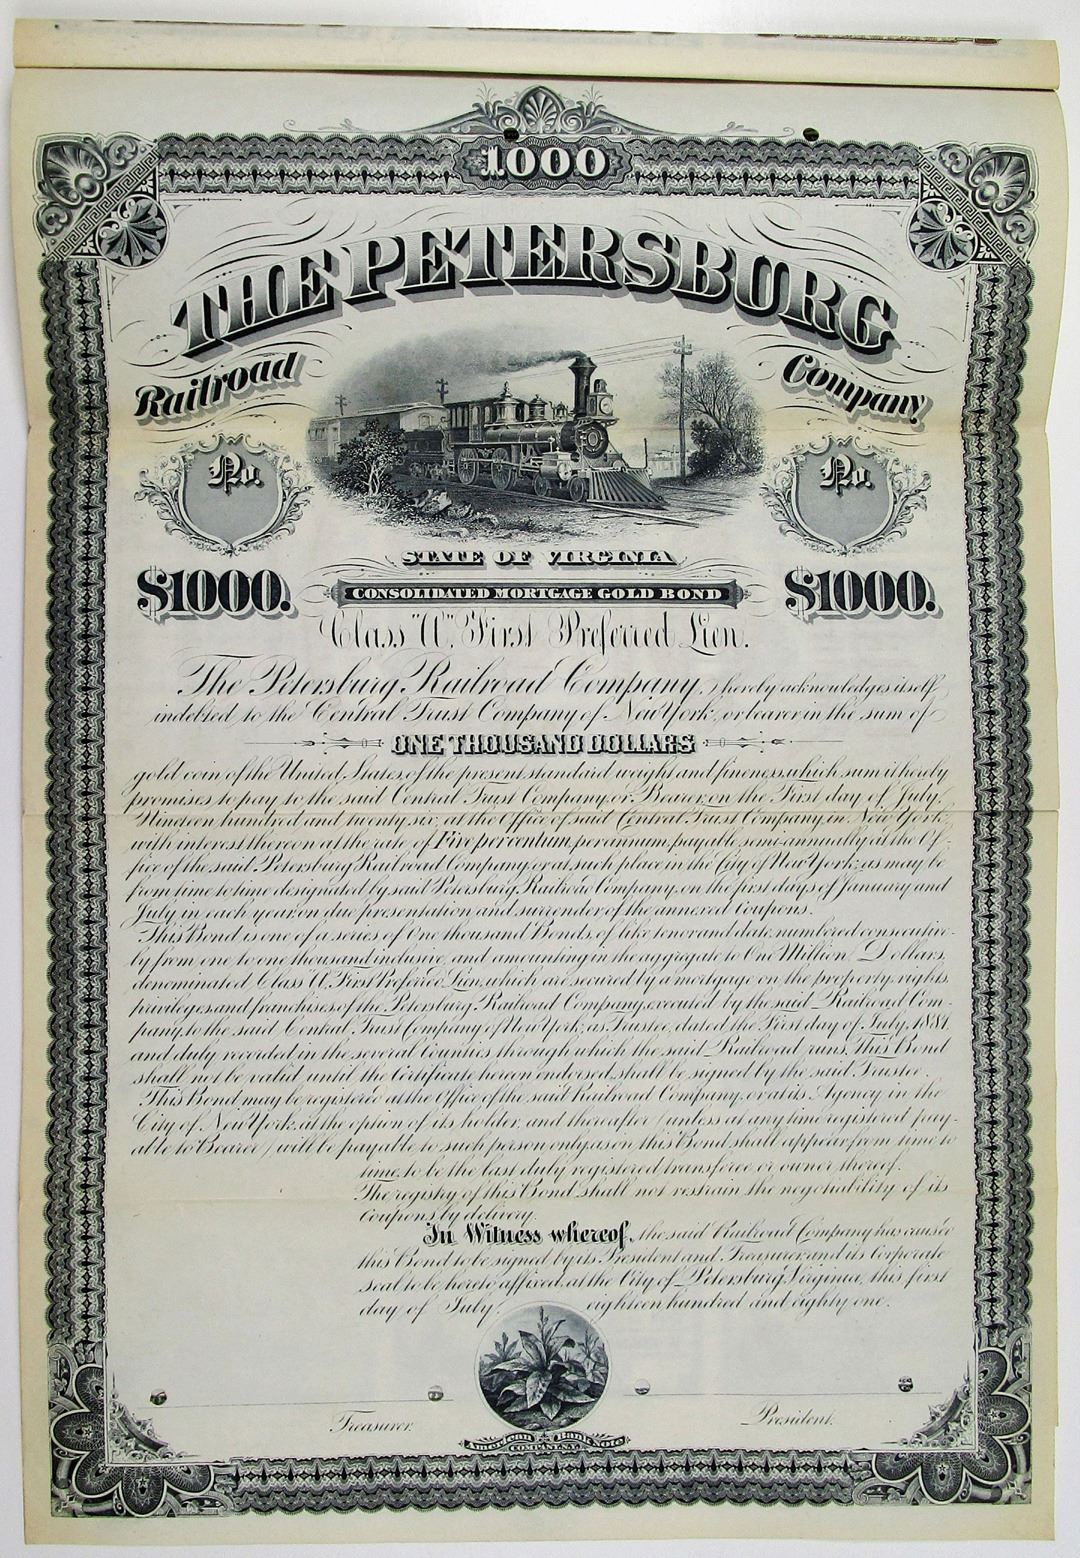 1000
THE PETERSBURG
Railroad Company
No. No.
STATE OF VIRGINIA
$1000. $1000.
CONSOLIDATED MORTGAGE GOLD BOND
Class "A" First Preferred Lien.
The Petersburg Railroad Company, hereby acknowledges itself
indebted to the Central Trust Company of New York, or bearer in the sum of
ONE THOUSAND DOLLARS
gold coin of the United States, of the present standard weight and fineness, which sum it hereby
promises to pay to the said Central Trust Company, or Bearer, on the First day of July,
Nineteen hundred and twenty six, at the Office of said Central Trust Company, in New York,
with interest thereon at the rate of Five per centum, per annum, payable semi-annually at the Of-
fice of the said Petersburg Railroad Company, or at such place in the City of New York, as may be
from time to time designated by said Petersburg Railroad Company, on the first days of January and
July in each year, on due presentation and surrender of the annexed Coupons.
This Bond is one of a series of One thousand Bonds, of like tenor and date, numbered consecutive-
ly from one to one thousand inclusive, and amounting in the aggregate to One Million Dollars,
denominated Class "A" First Preferred Lien, which are secured by a mortgage on the property, rights,
privileges and franchises of the Petersburg Railroad Company, executed by the said Railroad Com-
pany, to the said Central Trust Company of New York, as Trustee, dated the First day of July, 1881,
and duly recorded in the several Counties through which the said Railroad runs. This Bond
shall not be valid until the Certificate hereon endorsed shall be signed by the said Trustee.
This Bond may be registered at the Office of the said Railroad Company, or at its Agency in the
City of New York, at the option of its holder, and thereafter (unless at any time registered pay-
able to Bearer) will be payable to such person only as on this Bond shall appear from time to
time, to be the last duly registered transferee or owner thereof.
The registry of this Bond shall not restrain the negotiability of its
Coupons by delivery.
In Witness whereof, the said Railroad Company has caused
this Bond to be signed by its President and Treasurer and its Corporate
seal to be hereto affixed, at the City of Petersburg, Virginia, this first
day of July, eighteen hundred and eighty one.
Treasurer. President.
American Bank Note
COMPANY, N.Y.